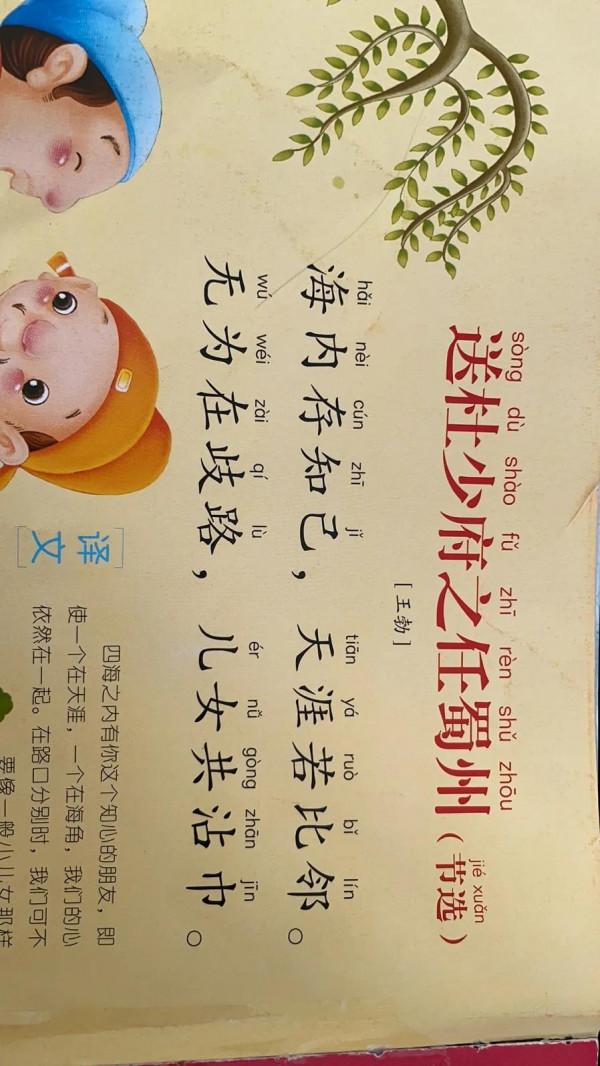 sòng dù shào fǔ zhī rèn shǔ zhōu jié xuǎn
送杜少府之任蜀州（节选）
[王勃]
hǎi nèi cún zhī jǐ tiān yá ruò bǐ lín
海内存知己，天涯若比邻。
wú wéi zài qí lù ér nǚ gòng zhān jīn
无为在歧路，儿女共沾巾。
[译文]
四海之内有你这个知心的朋友，即
使一个在天涯，一个在海角，我们的心
依然在一起。在路口分别时，我们可不
要像一般小儿女那样